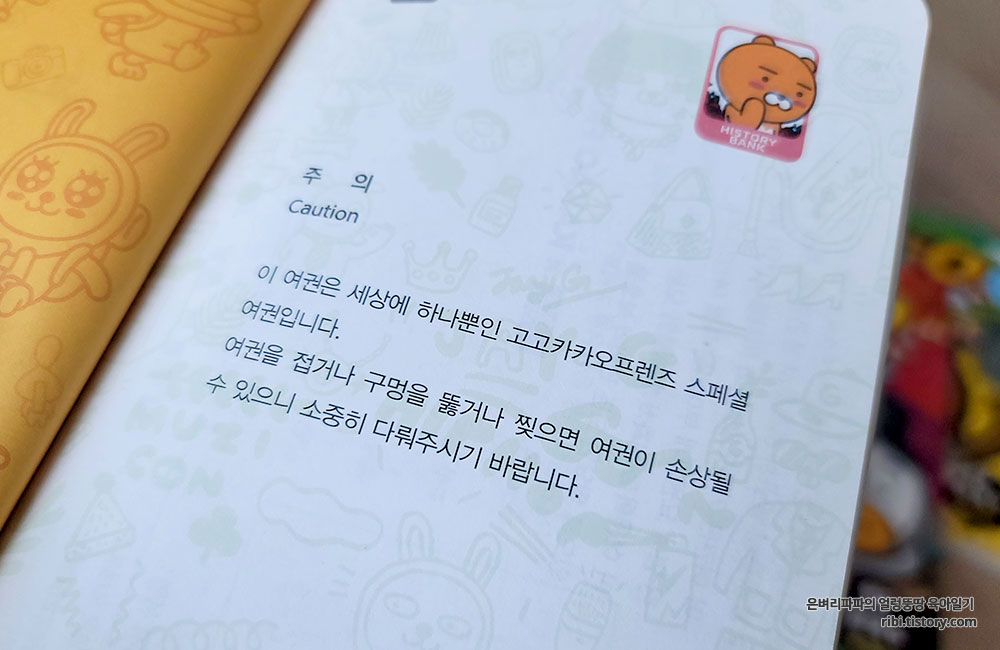 HISTORY
BANK
주 의
Caution
이 여권은 세상에 하나뿐인 고고카카오프렌즈 스페셜
여권입니다.
여권을 접거나 구멍을 뚫거나 찢으면 여권이 손상될
수 있으니 소중히 다뤄주시기 바랍니다.
MUZI
CON
은벼리파파의 얼렁뚱땅 육아일기
ribi.tistory.com